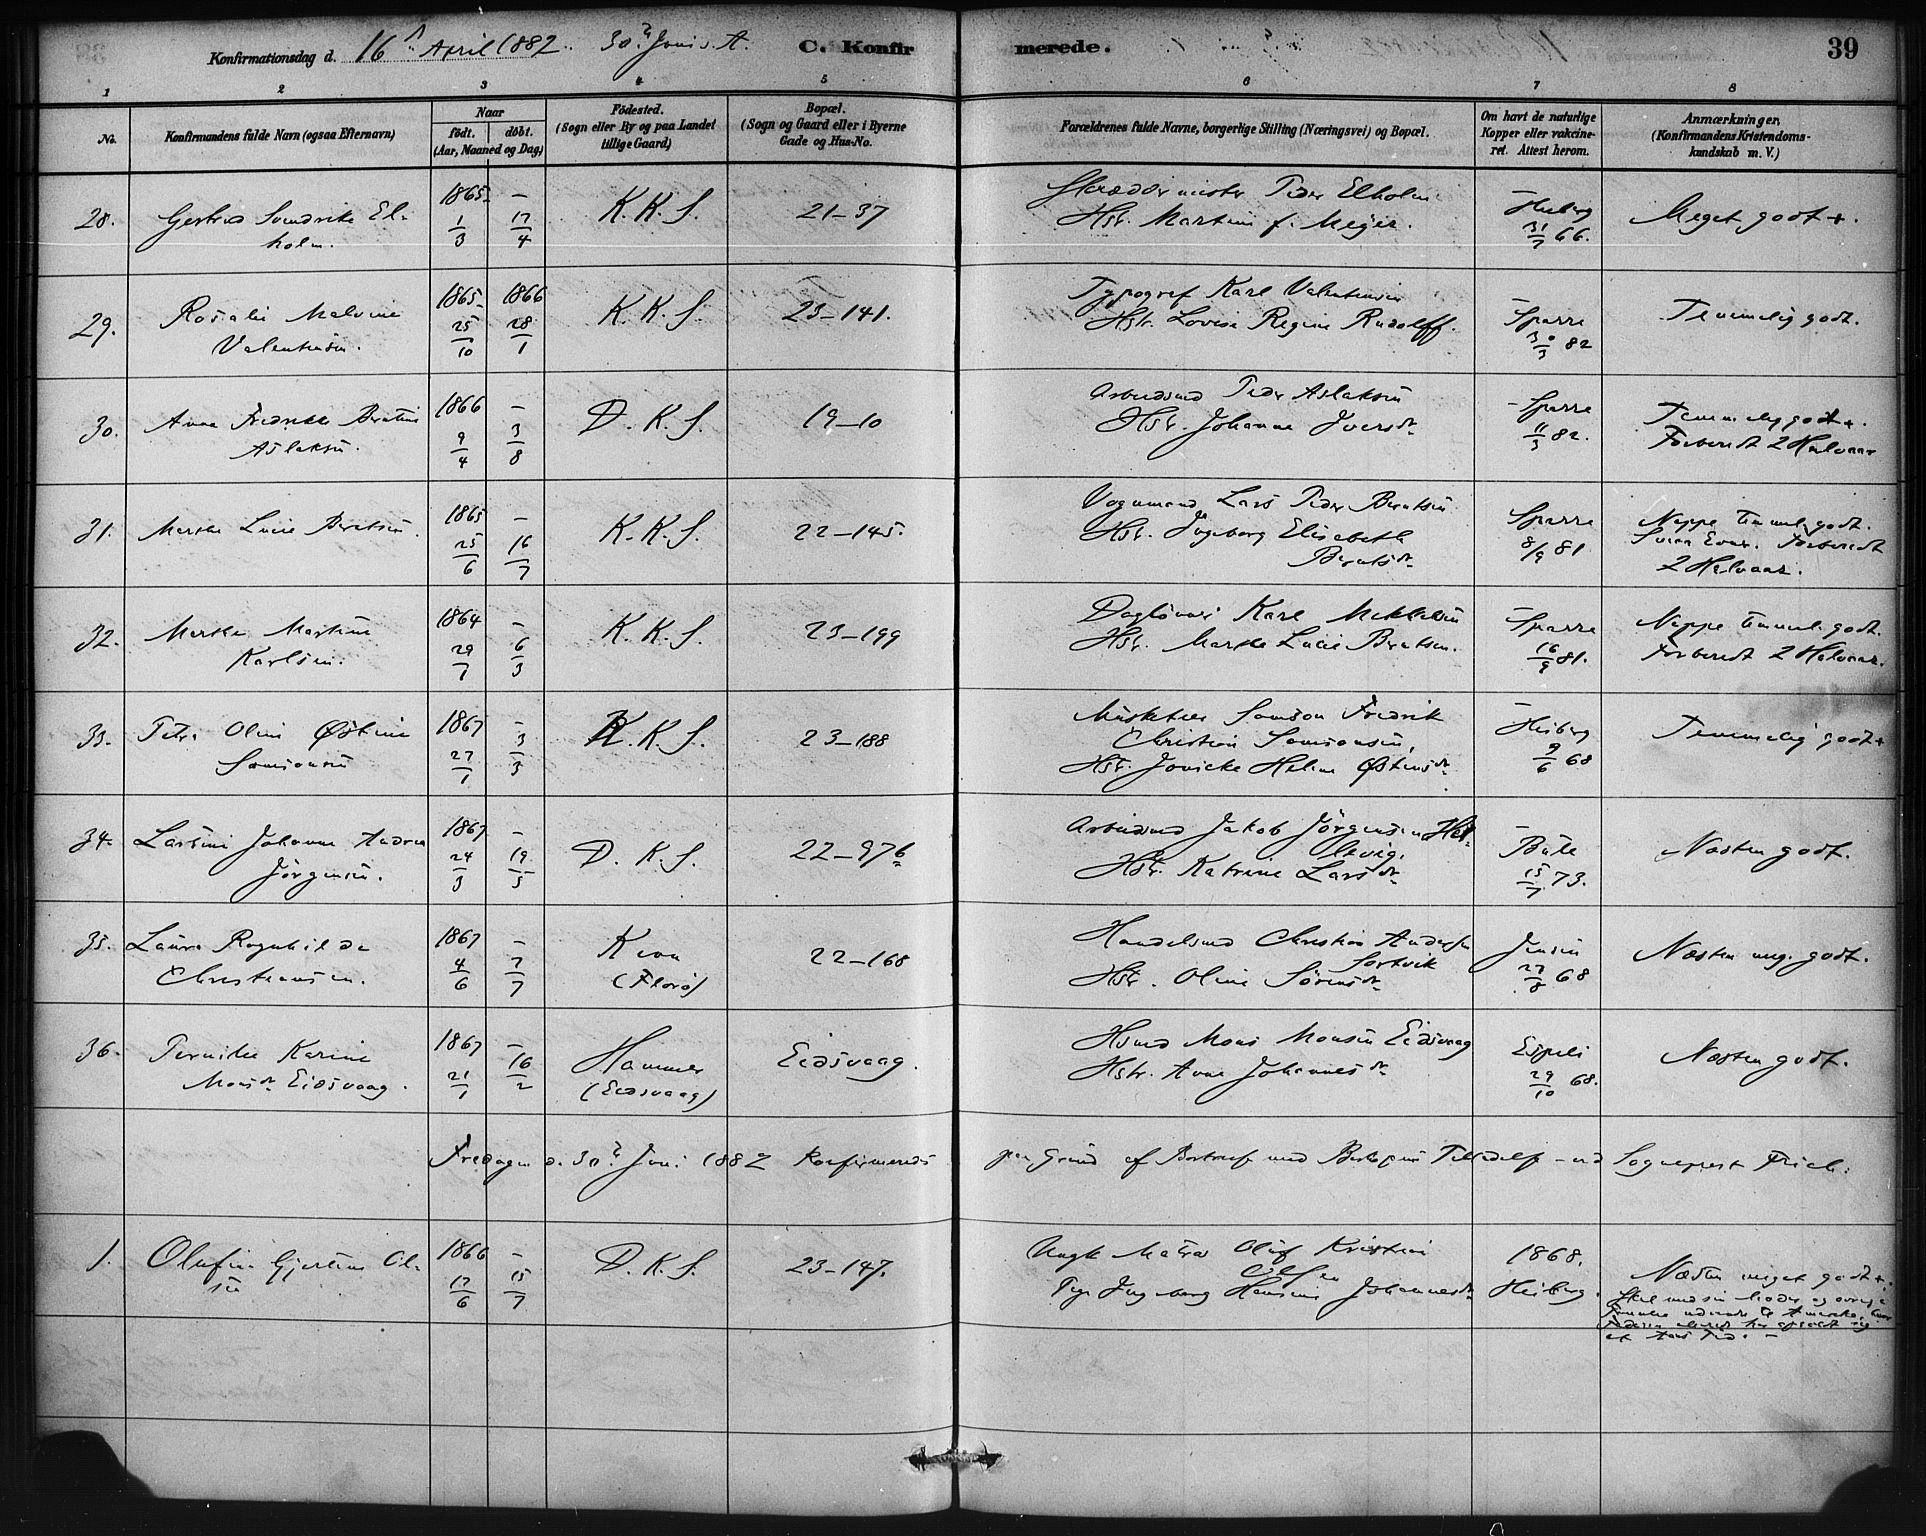 Konfirmationsdag d. 16 April 1882. 30 Juni s. A. C. Konfirmerede. 39
1 2 3 4 5 6 7 8
No. Konfirmandens fulde Navn (ogsaa Efternavn) Naar födt. döbt. (Aar, Maaned og Dag) Födested. (Sogn eller By og paa Landet tillige Gaard) Bopæl. (Sogn og Gaard eller i Byerne Gade og Hus-No. Forældrenes fulde Navne, borgerlige Stilling (Næringsvei) og Bopæl. Om havt de naturlige Kopper eller vakcineret. Attest herom. Anmærkninger. (Konfirmandens Kristendomskundskab m. V.)
28. Gertrud El-
holm. 1865 1/3 – 17/4 K. K. S. 21–37 Skræddermester Peder Elholm
Hstr. Martine f. Meyer. – Heiberg 31/7 66. Meget godt +.
29. Rosalie Malvine
Valentinsen. 1865 25/10 1866 28/1 K. K. S. 23–141. Typograf Karl Valentinsen
Hstr. Lovise Regine Rudolff. – Sparre 30/3 82 Temmelig godt.
30. Anna Fredrikke Berntine
Aslaksen. 1866 9/4 – 3/8 D. K. S. 19–10 Arbeidsmd Peder Aslaksen
Hstr. Johanne Iversdr – Sparre 11/3 82. Temmelig godt +.
Forberedt 2 Halvaar
31. Marthe Lucie Berntsen. 1865 25/6 – 16/7 K. K. S. 22–145. Vognmand Lars Peder Berntsen
Hstr. Ingeborg Elisabeth
Berntsdr Sparre 8/9 81 Neppe temmel. godt.
Forberedt
2 Halvaar.
32. Marthe Martine
Karlsen. 1864 29/7 – 6/3 K. K. S. 23–199 Karl Mikkelsen
Hstr. Marthe Lucie Berntsen. – Sparre 16/9 81. Neppe temmel. godt.
Forberedt 2 Halvaar.
33. Petra Oline Østine
Samsonsen 1867 27/1 – 3/3 K. K. S. 23–188 Musketeer Samson Fredrik
Christian Samsonsen,
Hstr. Jonicke Heline Østensdr – Heiberg 9/6 68 Temmelig godt +
34. Larsine Johanne Andrea
Jörgensen. 1867 24/3 – 19/5 D. K. S. 22–97b Arbeidsmd Jakob Jörgensen Hel-
levig.
Hstr. Katrine Larsdr – 15/7 73. Næsten godt.
35. Laura Ragnhilda
Christiansen. 1867 4/6 – 7/7 Kinn
(Florö) 22–168 Handelsmd Christian Andersen
Sortvik
Hstr. Oline Sörensdr Jensen 27/8 68 Næsten meg. godt.
36. Pernille Karine
Monsdr Eidsvaag. 1867 21/1 – 16/2 Hammer
(Eidsvaag) Eidsvaag. Hsmd Mons Monsen Eidsvaag
Hstr. Anna Johannesdr Espeli 29/10 68. Næsten godt.
Fredagen d. 30 Juni 1882 konfirmeredes paa Grund af Bortreise med Biskopens Tilladelse – ved Sognepræst Friele:
1. Olufine Gjertine Ol-
sen 1866 17/6 – 15/7 D. K. S. 23–147. Ungk. Matros Oluf Kristian
Olsen
Pige Ingeborg Hansine Johannesdr 1868.
Heiberg. Næsten meget godt +.
Skal med sin Moder og øvrige
Familie udvandre til Amerika, hvor
Faderen allerede har opholdt sig
et Aars Tid. –